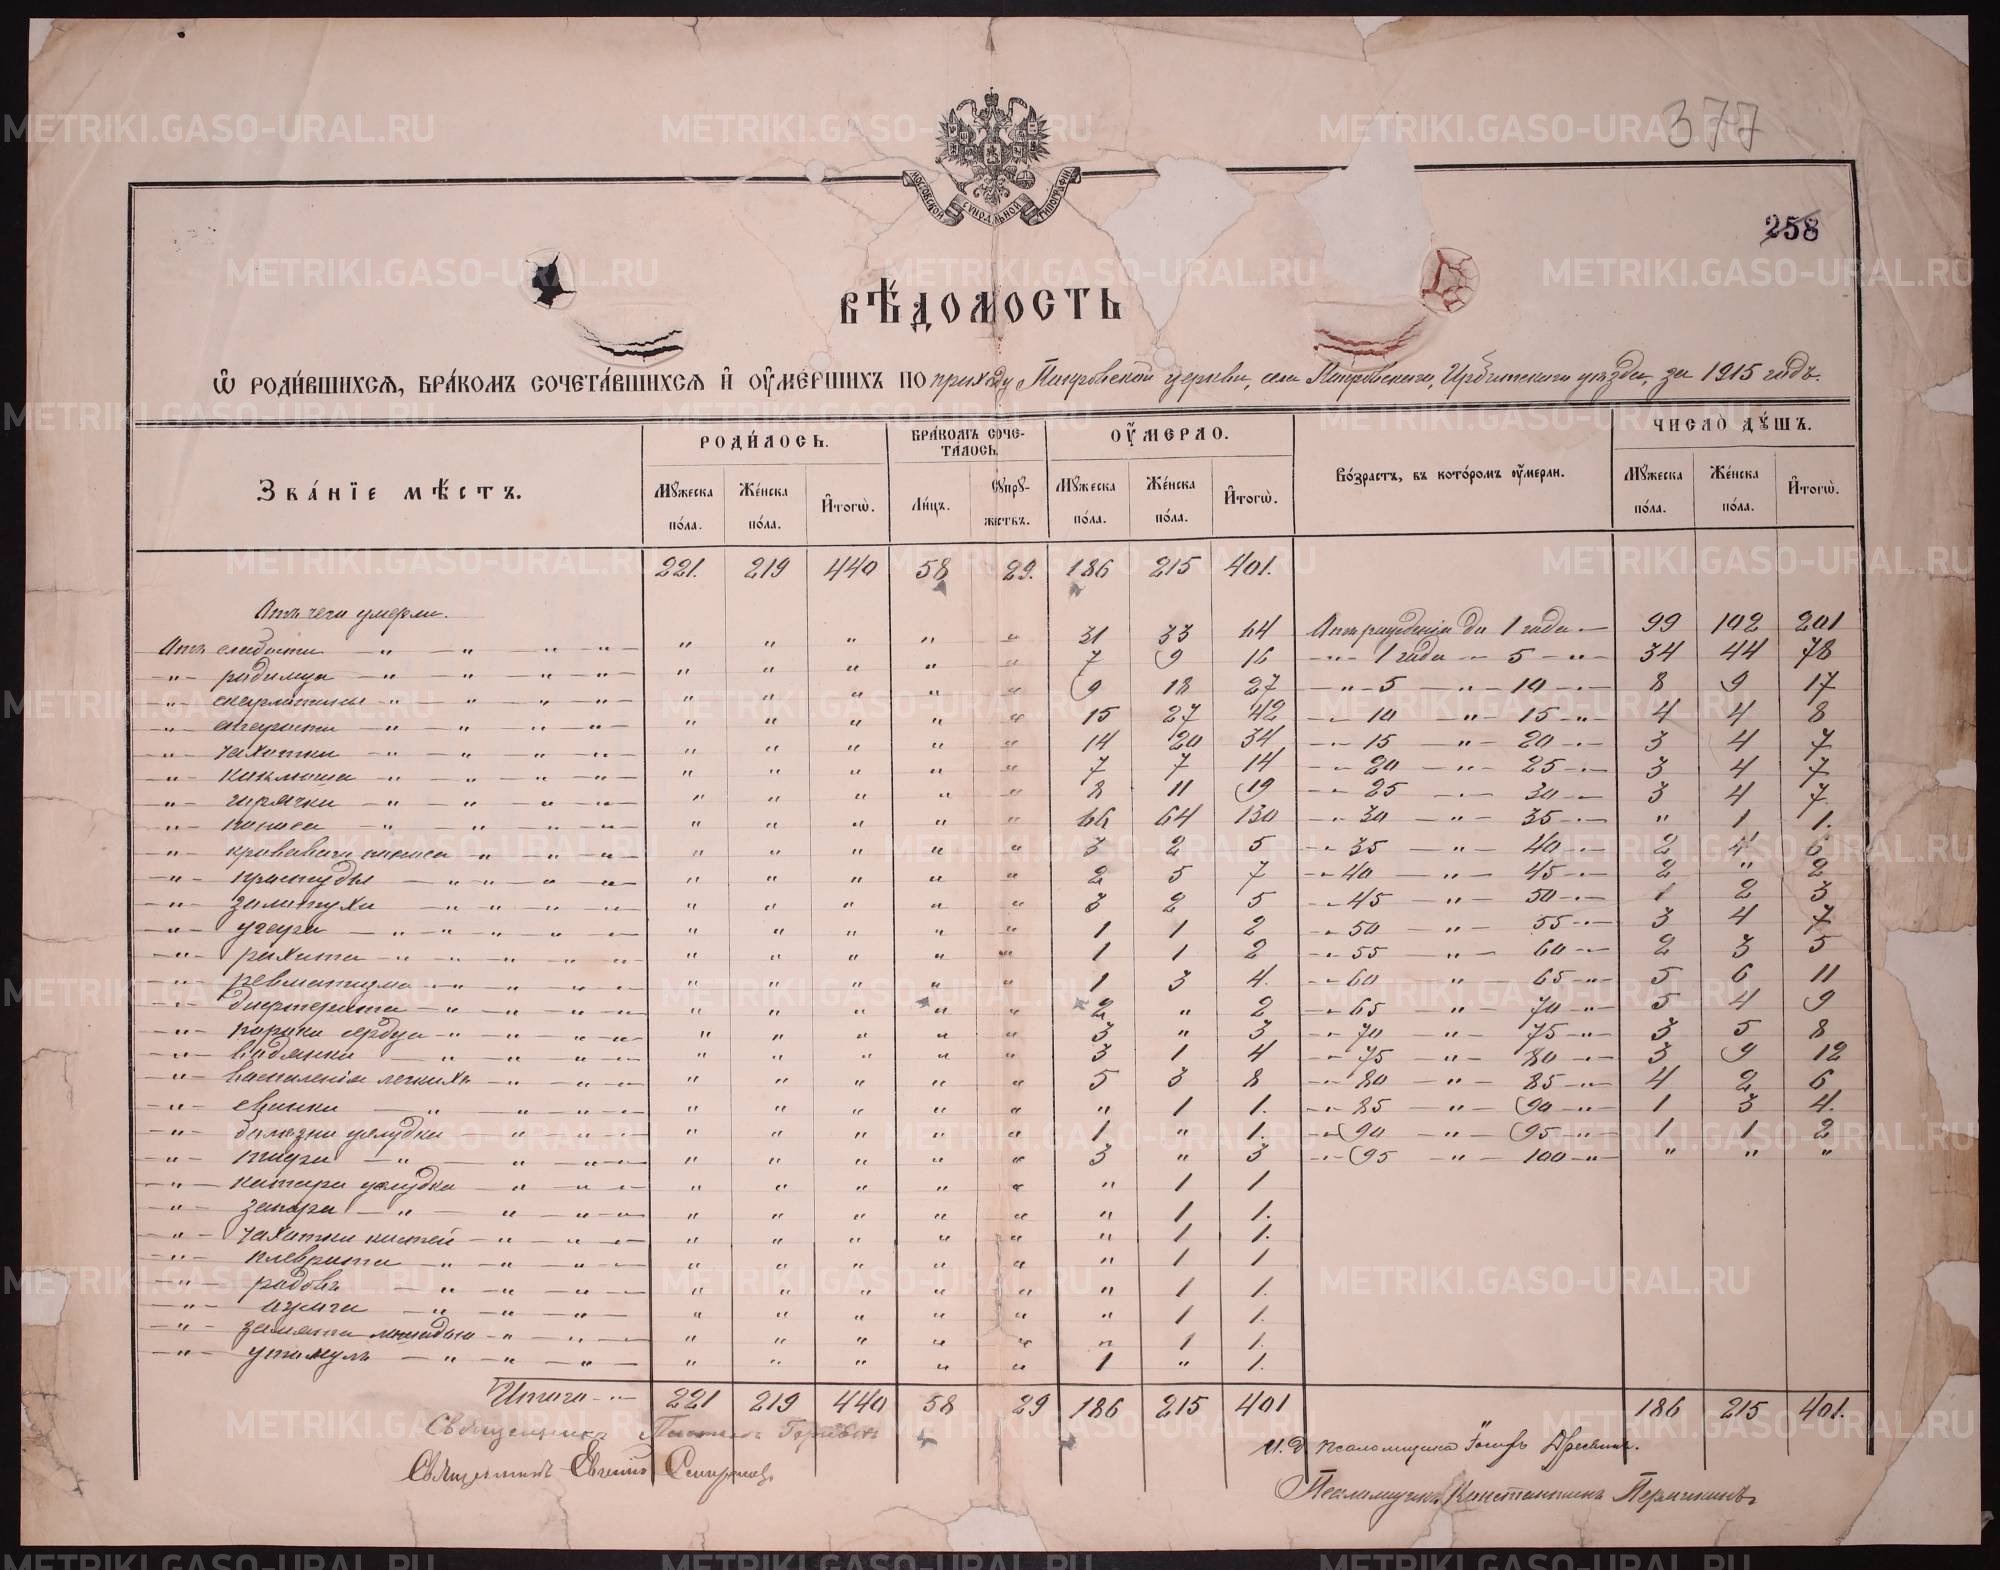 377
МОСКОВСКОЙ СѴНОДАЛЬНОЙ ТИПОГРАФІИ
258
ВѢ́ДОМОСТЬ
Ѡ РОДИ́ВШИХСѦ, БРА́КОМЪ СОЧЕТА́ВШИХСѦ И҆ ОУ҆МЕРШИХЪ ПО приходу Покровской церкви, села Покровскаго, Ирбитскаго уѣзда, за 1915 годъ.
ЗВА́НІЕ МѢ́СТЪ. РОДИ́ЛОСЬ. БРА́КОМЪ СОЧЕТА́ЛОСЬ. ОУ҆МЕРЛО. Во́зрастъ, въ кото́ромъ оу҆мерли. ЧИСЛО̀ ДꙊ́ШЪ.
Мꙋ́жеска по́ла. Же́нска по́ла. И҆того̀. Ли́цъ. Сꙋпрꙋ́жествъ. Мꙋ́жеска по́ла. Же́нска по́ла. И҆того̀. Мꙋ́жеска по́ла. Же́нска по́ла. И҆того̀.
221. 219 440 58 29. 186 215 401.
Отъ чего умерли.
Отъ слабости — „ — „ — „ — „ — „ „ „ „ „ 31 33 64 Отъ рожденія до 1 года — 99 102 201
— „ — родимца — „ — „ — „ — „ — „ „ „ „ „ 7 9 16 — „ — 1 года — 5 — „ — 34 44 78
— „ — скарлатины — „ — „ — „ — „ — „ „ „ „ „ 9 18 27 — „ — 5 — „ — 10 — „ — 8 9 17
— „ — старости — „ — „ — „ — „ — „ „ „ „ „ 15 27 42 — „ — 10 — „ — 15 — „ — 4 4 8
— „ — чахотки — „ — „ — „ — „ — „ „ „ „ „ 14 20 34 — „ — 15 — „ — 20 — „ — 3 4 7
— „ — коклюша — „ — „ — „ — „ — „ „ „ „ „ 7 7 14 — „ — 20 — „ — 25 — „ — 3 4 7
— „ — горячки — „ — „ — „ — „ — „ „ „ „ „ 8 11 19 — „ — 25 — „ — 30 — „ — 3 4 7
— „ — поноса — „ — „ — „ — „ — „ „ „ „ „ 66 64 130 — „ — 30 — „ — 35 — „ — „ 1 1.
— „ — кроваваго поноса — „ — „ — „ — „ „ „ „ „ 3 2 5 — „ — 35 — „ — 40 — „ — 2 4 6
— „ — простуды — „ — „ — „ — „ — „ „ „ „ „ 2 5 7 — „ — 40 — „ — 45 — „ — 2 „ 2
— „ — золотухи — „ — „ — „ — „ — „ „ „ „ „ 3 2 5 — „ — 45 — „ — 50 — „ — 1 2 3
— „ — — „ — „ — „ — „ — „ „ „ „ „ 1 1 2 — „ — 50 — „ — 55 — „ — 3 4 7
— „ — рахита — „ — „ — „ — „ — „ „ „ „ „ 1 1 2 — „ — 55 — „ — 60 — „ — 2 3 5
— „ — ревматизма — „ — „ — „ — „ — „ „ „ „ „ 1 3 4. — „ — 60 — „ — 65 — „ — 5 6 11
— „ — дифтерита — „ — „ — „ — „ — „ „ „ „ „ 2 „ 2 — „ — 65 — „ — 70 — „ — 5 4 9
— „ — порока сердца — „ — „ — „ — „ — „ „ „ „ „ 3 „ 3 — „ — 70 — „ — 75 — „ — 3 5 8
— „ — водянки — „ — „ — „ — „ — „ „ „ „ „ 3 1 4 — „ — 75 — „ — 80 — „ — 3 9 12
— „ — воспаленія легкихъ — „ — „ — „ — „ „ „ „ „ 5 3 8 — „ — 80 — „ — 85 — „ — 4 2 6
— „ — свинки — „ — „ — „ — „ — „ „ „ „ „ „ 1 1. — „ — 85 — „ — 90 — „ — 1 3 4.
— „ — болезни желудка — „ — „ — „ — „ „ „ „ „ 1 „ 1. — „ — 90 — „ — 95 — „ — 1 1 2
— „ — — „ — „ — „ — „ — „ „ „ „ „ 3 „ 3 — „ — 95 — „ — 100 — „ — „ „ „
— „ — катара желудка — „ — „ — „ — „ „ „ „ „ „ 1 1
— „ — запора — „ — „ — „ — „ — „ „ „ „ „ „ 1 1.
— „ — чахотки костей — „ — „ — „ — „ „ „ „ „ „ 1 1.
— „ — плеврита — „ — „ — „ — „ — „ „ „ „ „ „ 1 1
— „ — родовъ — „ — „ — „ — „ — „ „ „ „ „ „ 1 1.
— „ — ожога — „ — „ — „ — „ — „ „ „ „ „ „ 1 1.
— „ — лошадью — „ — „ — „ — „ „ „ „ „ „ 1 1.
— „ — утонулъ — „ — „ — „ — „ „ „ „ „ 1 „ 1.
Итого — „ — 221 219 440 58 29 186 215 401 „ 186 215 401.
Священникъ Горновъ
Священникъ Евгеній
И. д. псаломщика Іосифъ
Псаломщикъ Константинъ
METRIKI.GASO-URAL.RU